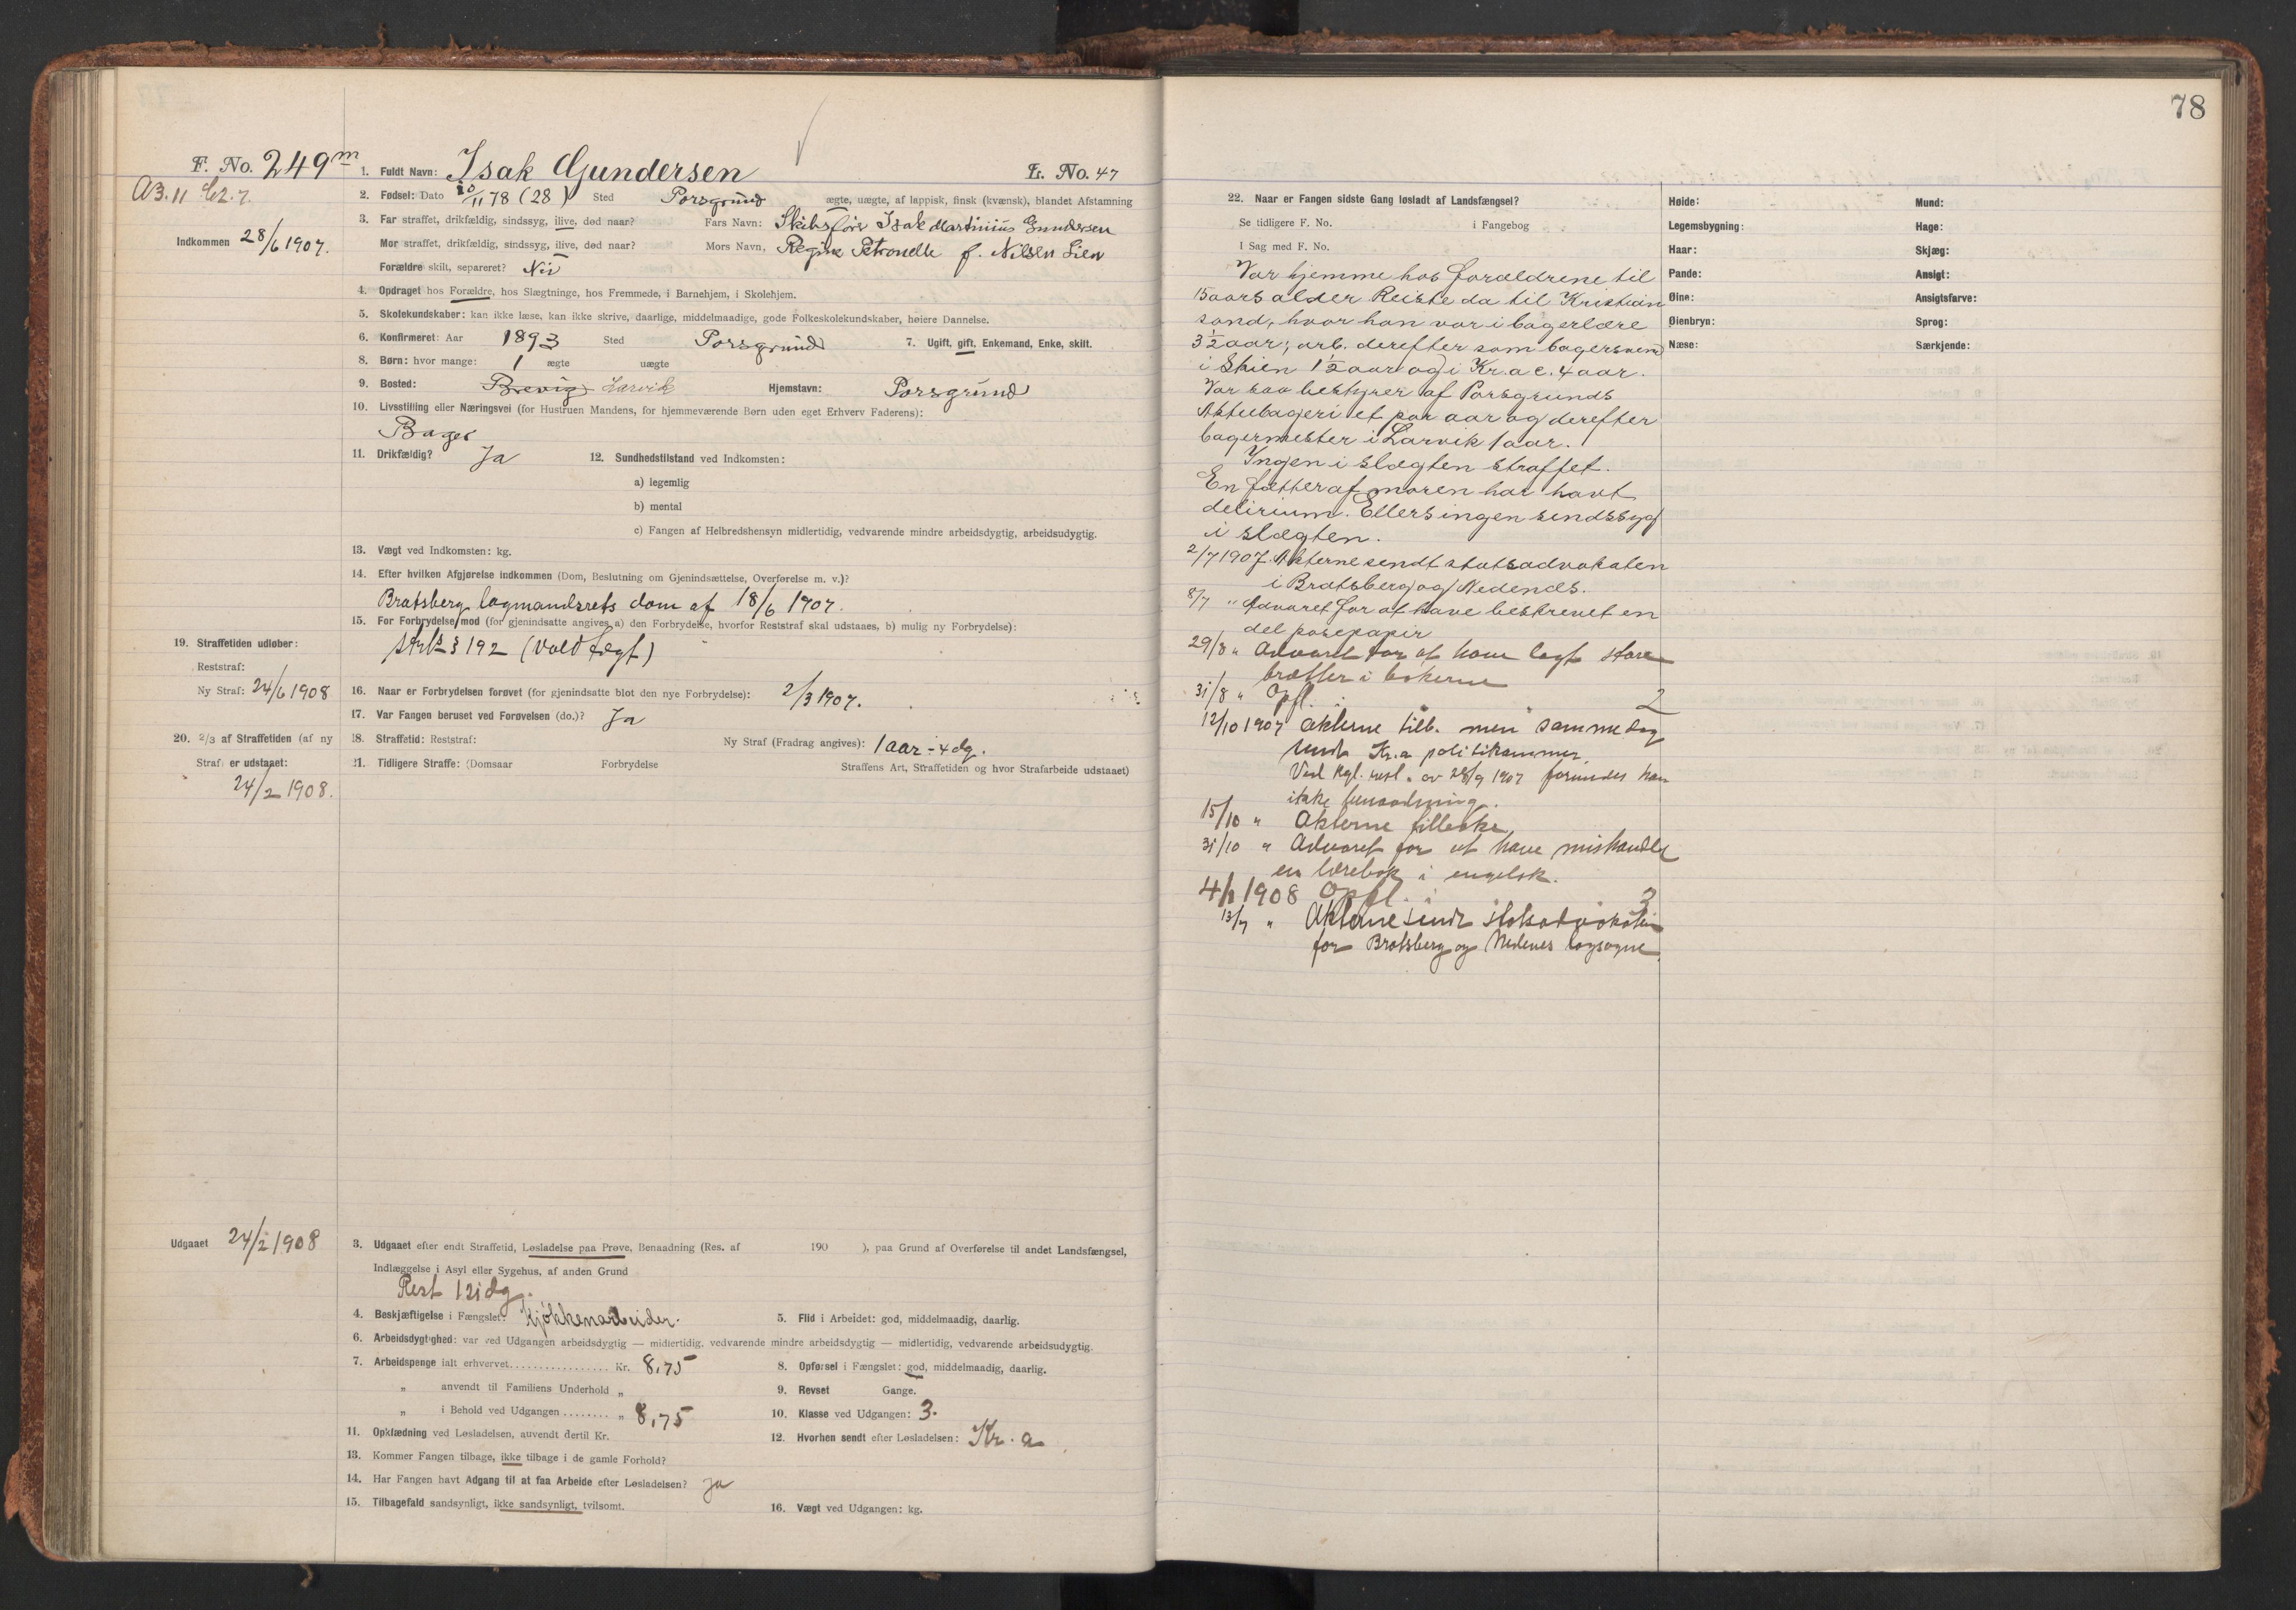 78
F. No. 249 m
1. Fuldt Navn: Isak Gundersen L. No. 47
2. Fødsel: Dato 20/11 78 (28) Sted Porsgrund ægte, uægte, af lappisk, finsk (kvænsk), blandet Afstamning
3. Far straffet, drikfældig, sindssyg, ilive, død naar? Fars Navn: Skibsfører Isak Martinius Gundersen
Indkommen 28/6 1907.
Mor straffet, drikfældig, sindssyg, ilive, død naar? Mors Navn, Regine Petronelle f. Nilsen Lien
Forældre skilt, separeret? Nei
4. Opdraget hos Forældre, hos Slægtninge, hos Fremmede, i Barnehjem, i Skolehjem.
5. Skolekundskaber: kan ikke læse, kan ikke skrive, daarlige, middelmaadige, gode Folkeskolekundskaber, høiere Dannelse.
6. Konfirmeret: Aar 1893 Sted Porsgrund 7. Ugift, gift, Enkemand, Enke, skilt.
8. Børn: hvor mange: 1 ægte uægte
9. Bosted: Brevig Larvik Hjemstavn: Porsgrund
10. Livsstilling eller Næringsvei (for Hustruen Mandens, for hjemmeværende Børn uden eget Erhverv Faderens):
Bager
11. Drikfældig? Ja 12. Sundhedstilstand ved Indkomsten:
a) legemlig
b) mental
c) Fangen af Helbredshensyn midlertidig, vedvarende mindre arbeidsdygtig, arbeidsudygtig.
13. Vægt ved Indkomsten: kg.
14. Efter hvilken Afgjørelse indkommen (Dom, Beslutning om Gjenindsættelse, Overførelse m. v.)?
Bratsberg lagmandsrets dom af 18/6 1907.
15. For Forbrydelse mod (for gjenindsatte angives a) den Forbrydelse, hvorfor Reststraf skal udstaaes, b) mulig ny Forbrydelse):
§ 192 (Voldtægt)
19. Straffetiden udløber:
Reststraf:
Ny Straf: 24/6 1908
16. Naar er Forbrydelsen forøvet (for gjenindsatte blot den nye Forbrydelse): 2/3 1907.
17. Var Fangen beruset ved Forøvelsen (do.)? Ja
20. 2/3 af Straffetiden (af ny
Straf) er udstaaet:
24/2 1908.
18. Straffetid: Reststraf: Ny Straf (Fradrag angives): 1 aar - 4 dg.
21. Tidligere Straffe: (Domsaar Forbrydelse Straffens Art, Straffetiden og hvor Strafarbeide udstaaet)
Udgaaet 24/2 1908
3. Udgaaet efter endt Straffetid, Løsladelse paa Prøve, Benaadning (Res. af 190 ), paa Grund af Overførelse til andet Landsfængsel,
Indlæggelse i Asyl eller Sygehus, af anden Grund
Rest 121 dg.
4. Beskjæftigelse i Fængslet: Kjøkkenarbeider. 5. Flid i Arbeidet: god, middelmaadig, daarlig.
6. Arbeidsdygtighed: var ved Udgangen arbeidsdygtig — midlertidig, vedvarende mindre arbeidsdygtig — midlertidig, vedvarende arbeidsudygtig.
7. Arbeidspenge ialt erhvervet................. Kr. 8,75 8. Opførsel i Fængslet: god, middelmaadig, daarlig.
„ anvendt til Familiens Underhold „ 9. Revset Gange.
„ i Behold ved Udgangen ........ „ 8,75 10. Klasse ved Udgangen: 3.
11. Opklædning ved Løsladelsen, anvendt dertil Kr. 12. Hvorhen sendt efter Løsladelsen: Kr.a
13. Kommer Fangen tilbage, ikke tilbage i de gamle Forhold?
14. Har Fangen havt Adgang til at faa Arbeide efter Løsladelsen? Ja
15. Tilbagefald sandsynligt, ikke sandsynligt, tvilsomt. 16. Vægt ved Udgangen: kg.
22. Naar er Fangen sidste Gang løsladt af Landsfængsel?
Se tidligere F. No. i Fangebog
I Sag med F. No.
Var hjemme hos forældrene til
15 aars alder. Reiste da til Kristian
sand, hvor han var i bagerlære
3 1/2 aar; arb. derefter som bagersvend
i Skien 1 1/2 aar og i Kr.a c. 4 aar.
Var saa bestyrer af Porsgrunds
Aktiebageri et par aar og derefter
bagermester i Larvik 1 aar.
Ingen i slægten straffet.
En fætter af moren har havt
delirium. Ellers ingen sindssyg
i slægten.
2/7 1907. Akterne sendt statsadvokaten
i Bratsberg og Nedenes.
8/7 " Advaret for at have beskrevet en
del posepapir
29/8 " Advaret for at have lagt store
bretter i bøkerne
31/8 " Opfl. 2
12/10 1907 Akterne tilb. men samme dag
sendt Kr.a politikammer.
Ved kgl. resl. av 28/9 1907 forundes han
ikke benaadning.
15/10 " Akterne tilbake
31/10 " Advaret for at have mishandlet
en lærebok i engelsk.
4/1 1908 Opfl. 3
13/7 " Akterne sendt statsadvokaten
for Bratsberg og Nedenes lagsogne.
Høide: Mund:
Legemsbygning: Hage:
Haar: Skjæg:
Pande: Ansigt:
Øine: Ansigtsfarve:
Øienbryn: Sprog:
Næse: Særkjende: